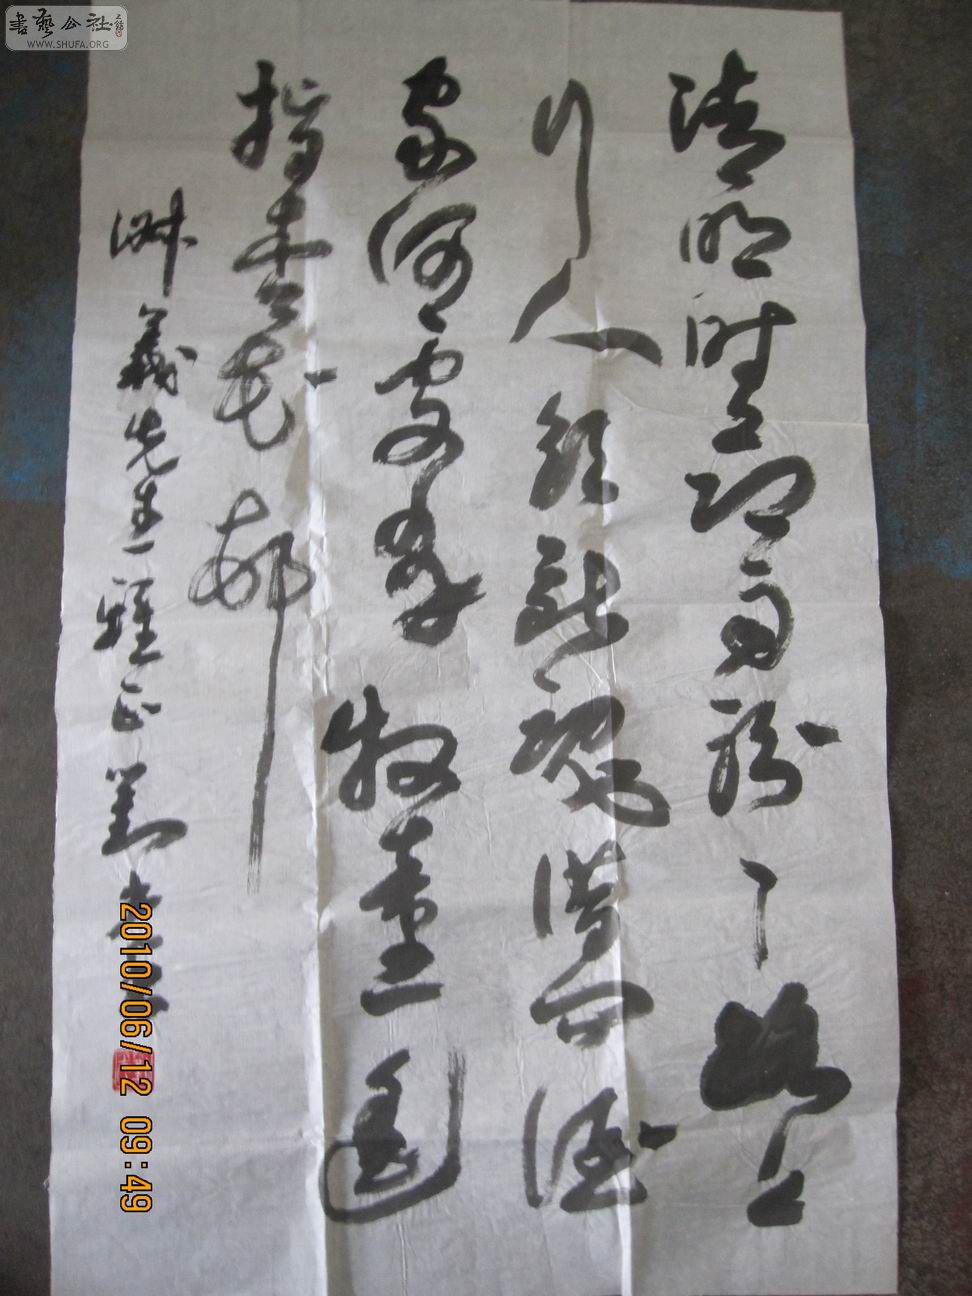 書藝公社
WWW.SHUFA.ORG
清明時節雨紛々路上
行人欲斷魂借問酒
家何處有牧童遥
指杏花邨
義先生雅正
2010/06/12 09:49